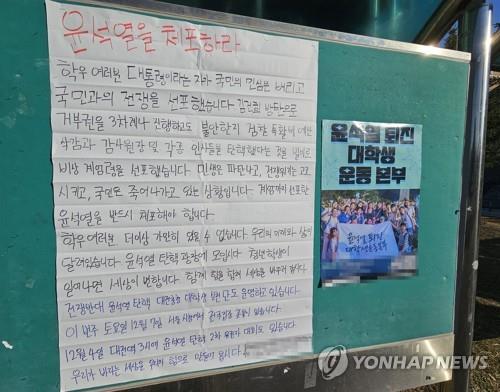 윤석열을 체포하라
학우 여러분 대통령이라는 자가 국민의 민심을 버리고
국민과의 전쟁을 선포했습니다 김건희 방탄으로
거부권을 3차례나 진행하고도 불안한지 검찰 특활비 예산
삭감과 감사원장 및 각종 인사들을 탄핵했다는 것을 빌미로
비상 계엄령을 선포했습니다 민생은 파탄나고, 전쟁위기는 고조
시키고, 국민은 죽어나가고 있는 상황입니다 계엄까지 선포한
윤석열을 반드시 체포해야 합니다.
학우 여러분 더이상 가만히 있을 수 없습니다 우리의 미래와 삶이
달려있습니다 윤석열 탄핵 광장에 모입시다 청년학생이
일어나면 세상이 변합니다. 함께 힘을 합쳐 세상을 바꾸러 갑시다.
전쟁반대 윤석열 탄핵 대진연 대학생 운영하고 있습니다
이번주 토요일 12월 7일 서울 시청에서 있습니다
12월 4일 대전역 3시에 윤석열 탄핵 2차 대회도 있습니다
우리가 바라는 세상을 우리의 힘으로 만들어 봅시다!
윤석열 퇴진
대학생
운동 본부
윤석열 퇴진
대학생운동본부
YONHAP NEWS